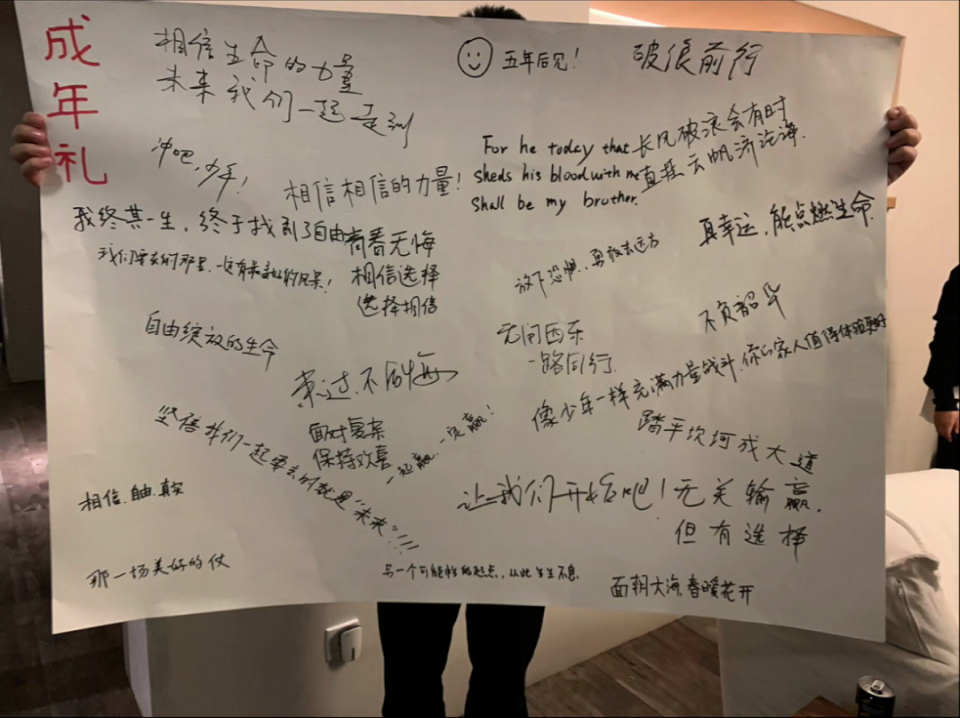 成年礼
相信生命的力量
未来我们一起走到
五年后见!
破浪前行
冲吧,少年!
相信相信的力量!
For he today that
sheds his blood with me
shall be my brother.
长风破浪会有时
直挂云帆济沧海.
我终其一生,终于找到了自由
青春无悔
真幸运,能点燃生命.
我们要去的那里,一定有最 的风景!
相信选择
选择相信
放下恐惧,勇敢去远方
不负韶华
自由绽放的生命
无问西东
一路同行.
来过不后悔
像少年一样充满力量战斗.你的家人值得体验更好
面对复杂
保持欢喜
一起赢,一定赢!
踏平坎坷成大道
坚信我们一起要去的就是"未来"!!!
相信.自由.真实
让我们开始吧!无关输赢,
但有选择
那一场美好的仗
另一个可能性的起点,从此生生不息.
面朝大海,春暖花开